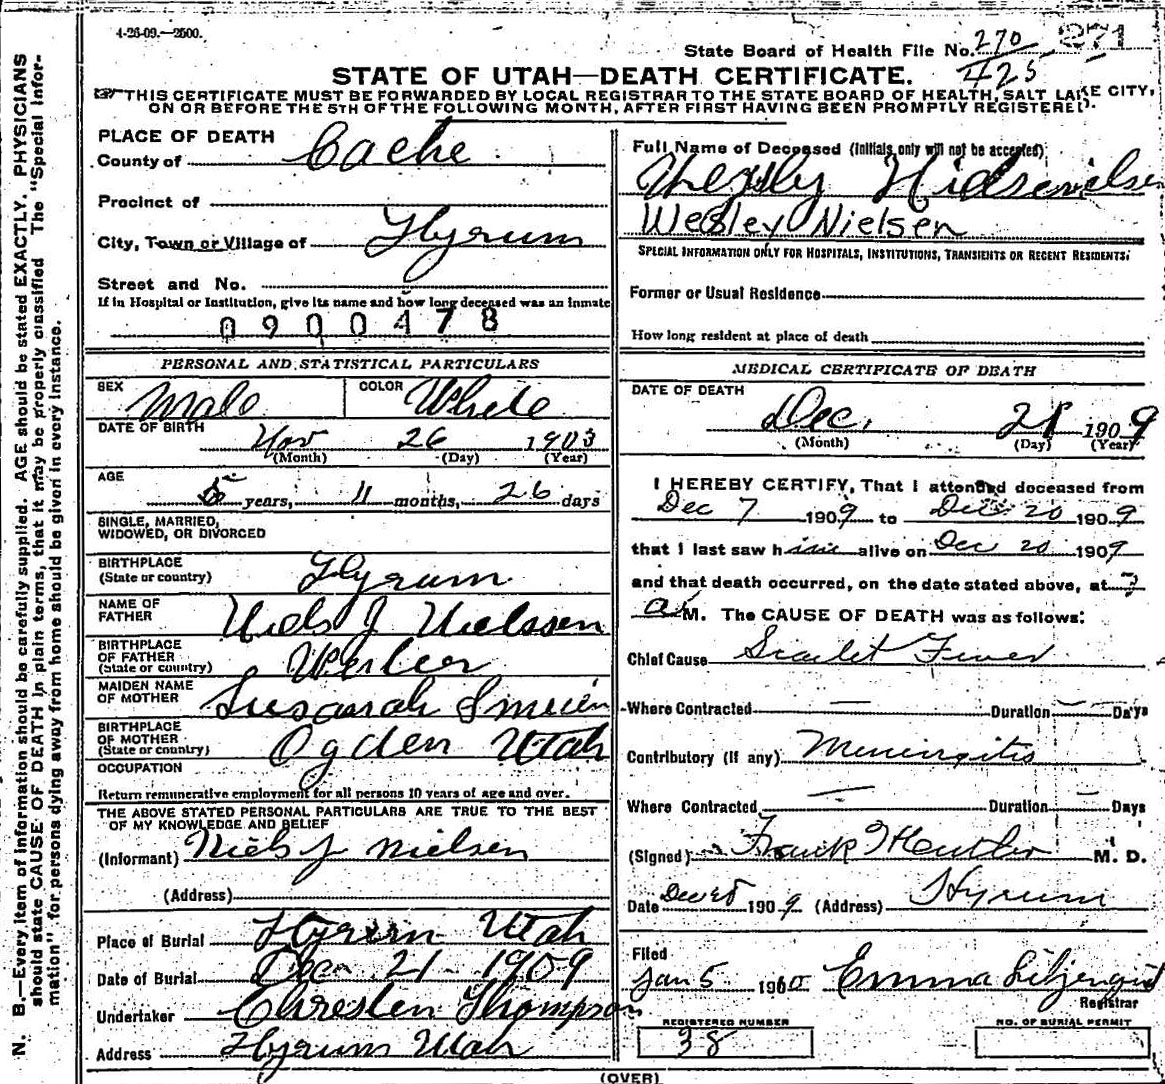 4-26-09.—2500.
State Board of Health File No. 270 271
425
STATE OF UTAH—DEATH CERTIFICATE.
THIS CERTIFICATE MUST BE FORWARDED BY LOCAL REGISTRAR TO THE STATE BOARD OF HEALTH, SALT LAKE CITY,
ON OR BEFORE THE 5TH OF THE FOLLOWING MONTH, AFTER FIRST HAVING BEEN PROMPTLY REGISTERED.
PLACE OF DEATH
County of Cache
Precinct of
City, Town or Village of Hyrum
Street and No.
If in Hospital or Institution, give its name and how long deceased was an inmate
0900478
PERSONAL AND STATISTICAL PARTICULARS
SEX Male COLOR White
DATE OF BIRTH
Nov 26 1903
(Month) (Day) (Year)
AGE
5 years, 11 months, 26 days
SINGLE, MARRIED,
WIDOWED, OR DIVORCED
BIRTHPLACE
(State or country) Hyrum
NAME OF
FATHER Niels J Nielssen
BIRTHPLACE
OF FATHER
(State or country)
MAIDEN NAME
OF MOTHER Susanah
BIRTHPLACE
OF MOTHER
(State or country) Ogden Utah
OCCUPATION
Return remunerative employment for all persons 10 years of age and over.
THE ABOVE STATED PERSONAL PARTICULARS ARE TRUE TO THE BEST
OF MY KNOWLEDGE AND BELIEF
(Informant) Niels J Nielsen
(Address)
Place of Burial Hyrum Utah
Date of Burial Dec 21 - 1909
Undertaker Chresten Thompson
Address Hyrum Utah
Full Name of Deceased (Initials only will not be accepted)
Wesley Nielsen
SPECIAL INFORMATION ONLY FOR HOSPITALS, INSTITUTIONS, TRANSIENTS OR RECENT RESIDENTS.
Former or Usual Residence
How long resident at place of death
MEDICAL CERTIFICATE OF DEATH
DATE OF DEATH
Dec. 21 1909
(Month) (Day) (Year)
I HEREBY CERTIFY, That I attended deceased from
Dec 7 1909 to Dec 20 1909
that I last saw him alive on Dec 20 1909
and that death occurred, on the date stated above, at 7
a M. The CAUSE OF DEATH was as follows:
Chief Cause Scarlet Fever
Where Contracted — Duration — Days
Contributory (if any) Meningitis
Where Contracted — Duration — Days
(Signed) Frank M. D.
Date Dec 1909 (Address) Hyrum
Filed
Jan 5 1910 Emma Liljenquist
Registrar
REGISTERED NUMBER
38
NO. OF BURIAL PERMIT
(OVER)
N. B.—Every item of information should be carefully supplied. AGE should be stated EXACTLY. PHYSICIANS
should state CAUSE OF DEATH in plain terms, that it may be properly classified. The "Special Infor-
mation" for persons dying away from home should be given in every instance.